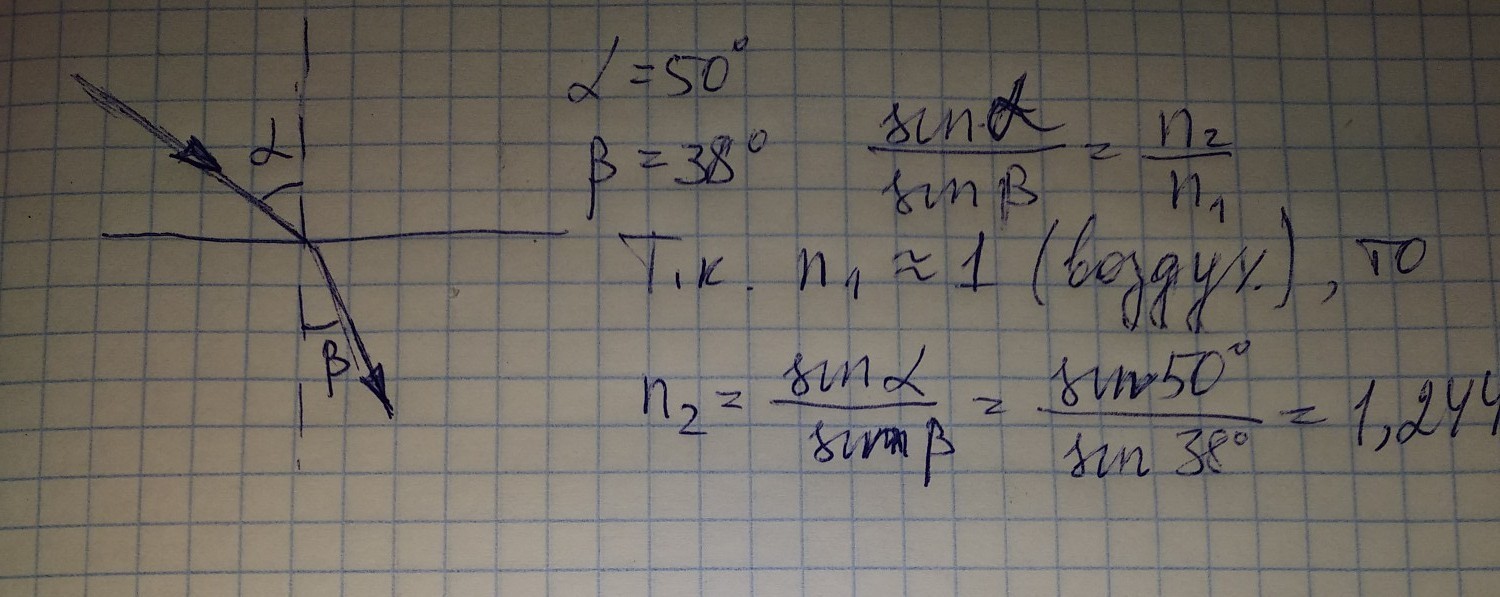 α
β
α = 50°
β = 38°
sin α / sin β = n₂ / n₁
Т.к. n₁ ≈ 1 (воздух), то
n₂ = sin α / sin β = sin 50° / sin 38° = 1,244